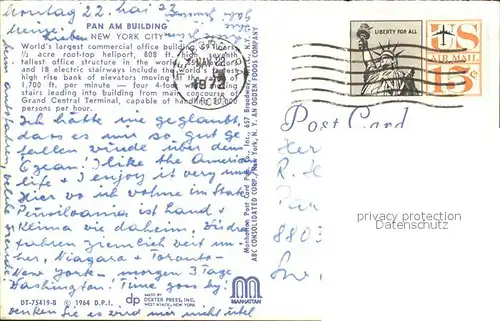 Montag 22. Mai 73
PAN AM BUILDING
NEW YORK CITY
World's largest commercial office building, 59 floors,
½ acre roof-top heliport, 808 ft. high. Seventh
tallest office structure in the world. 65
and 18 electric stairways include the world's fastest
high rise bank of elevators moving at the rate of
1,700 ft. per minute — four 4-foot wide moving
stairs leading into building from main concourse of
Grand Central Terminal, capable of handling 30,000
persons per hour.
Ich hätte nie geglaubt,
dass es mir so gut ge
fallen würde über dem
Ozean! I like the America
life & I enjoy it very much
Hier wo ich wohne im State
Pensilvania ist Land &
Klima wie daheim. Wir
fahren ziemlich weit um-
her, Niagara & Toronto-
New York - morgen 3 Tage
Washington! Time goes by!
DT-75419-B © 1964 D.P.I.
denken Sie es wird mir nicht übel
dp
MADE BY
DEXTER PRESS, INC.
WEST NYACK, NEW YORK
MANHATTAN
Manhattan Post Card Pub. Co., Inc., 657 Broadway, N.Y.
ABC CONSOLIDATED CORP./New York, N. Y. AN OGDEN FOODS COMPANY
1973
LIBERTY FOR ALL
US
AIR MAIL
15c
Post Card
Her
R
Par
8803
Sw
protection copyright
oldthing.com